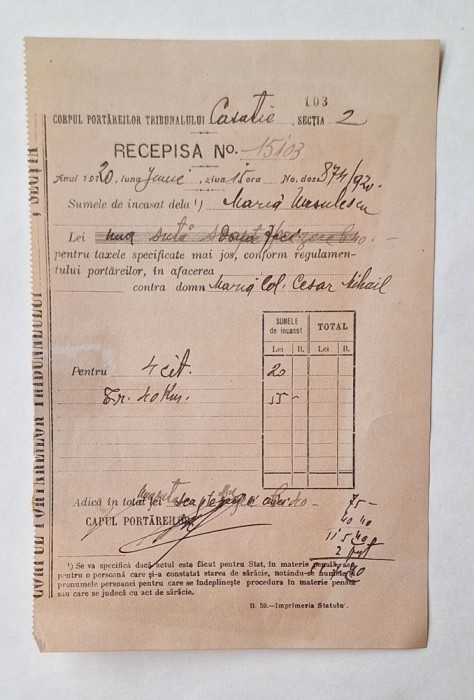 103
CORPUL PORTĂREILOR TRIBUNALULUI Casatie, SECȚIA 2
RECEPISA No. 15103
Anul 1920, luna Junie, ziua 15 ora No. dos. 874/920.
Sumele de incasat dela ¹) Maria
Lei una sută
pentru taxele specificate mai jos, conform regulamen-
tului portăreilor, în afacerea
contra domn Maria Col. Cesar Mihail
SUMELE de incasat TOTAL
Lei B. Lei B.
Pentru 4 cit. 20
Tr. 40 Km. 55 -
Adică în total lei
75 -
CAPUL PORTĂREILOR
40 40
115 40
2
¹) Se va specifică dacă actul este făcut pentru Stat, în materie penală, sau
pentru o persoană care și-a constatat starea de sărăcie, notându-se numele și
pronumele persoanei pentru care se îndeplinește procedura în materie penală
sau care se judecă cu act de sărăcie.
B. 59.—Imprimeria Statului.
CORPUL PORTĂREILOR TRIBUNALULUI SECȚIA